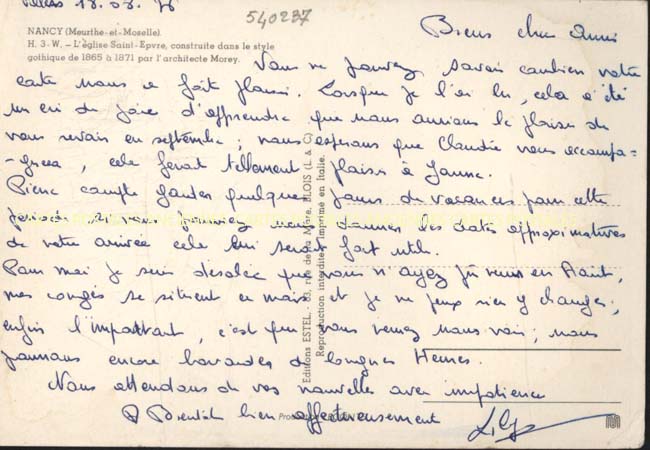 18.03.76
540237
Biens chers Amis
NANCY (Meurthe-et-Moselle)
H. 3-W. - L'église Saint-Epvre, construite dans le style
gothique de 1865 à 1871 par l'architecte Morey.
Vous ne pouvez savoir combien votre
carte nous a fait plaisir. Lorsque je l'ai lu, cela a été
un cri de joie d'apprendre que nous aurions le plaisir de
vous revoir en septembre ; nous espérons que Claudie vous accompa-
-gnera, cela ferait tellement plaisir à
Pierre compte garder quelques jours de vacances pour cette
période si vous pouviez nous donner des dates approximatives
de votre arrivée cela lui serait fort utile.
Pour moi je suis désolée que vous n'ayez pu venir en Août,
mes congés se situent en mai et je ne peux rien y changer,
enfin l'important, c'est que vous venez nous voir ; nous
pourrons encore bavarder de longues Heures.
Nous attendons de vos nouvelles avec impatience
A Bientôt bien affectueusement
Editions ESTEL - 83, rue de la Mare, BLOIS (L. & C.)
Reproduction interdite. Imprimé en Italie.